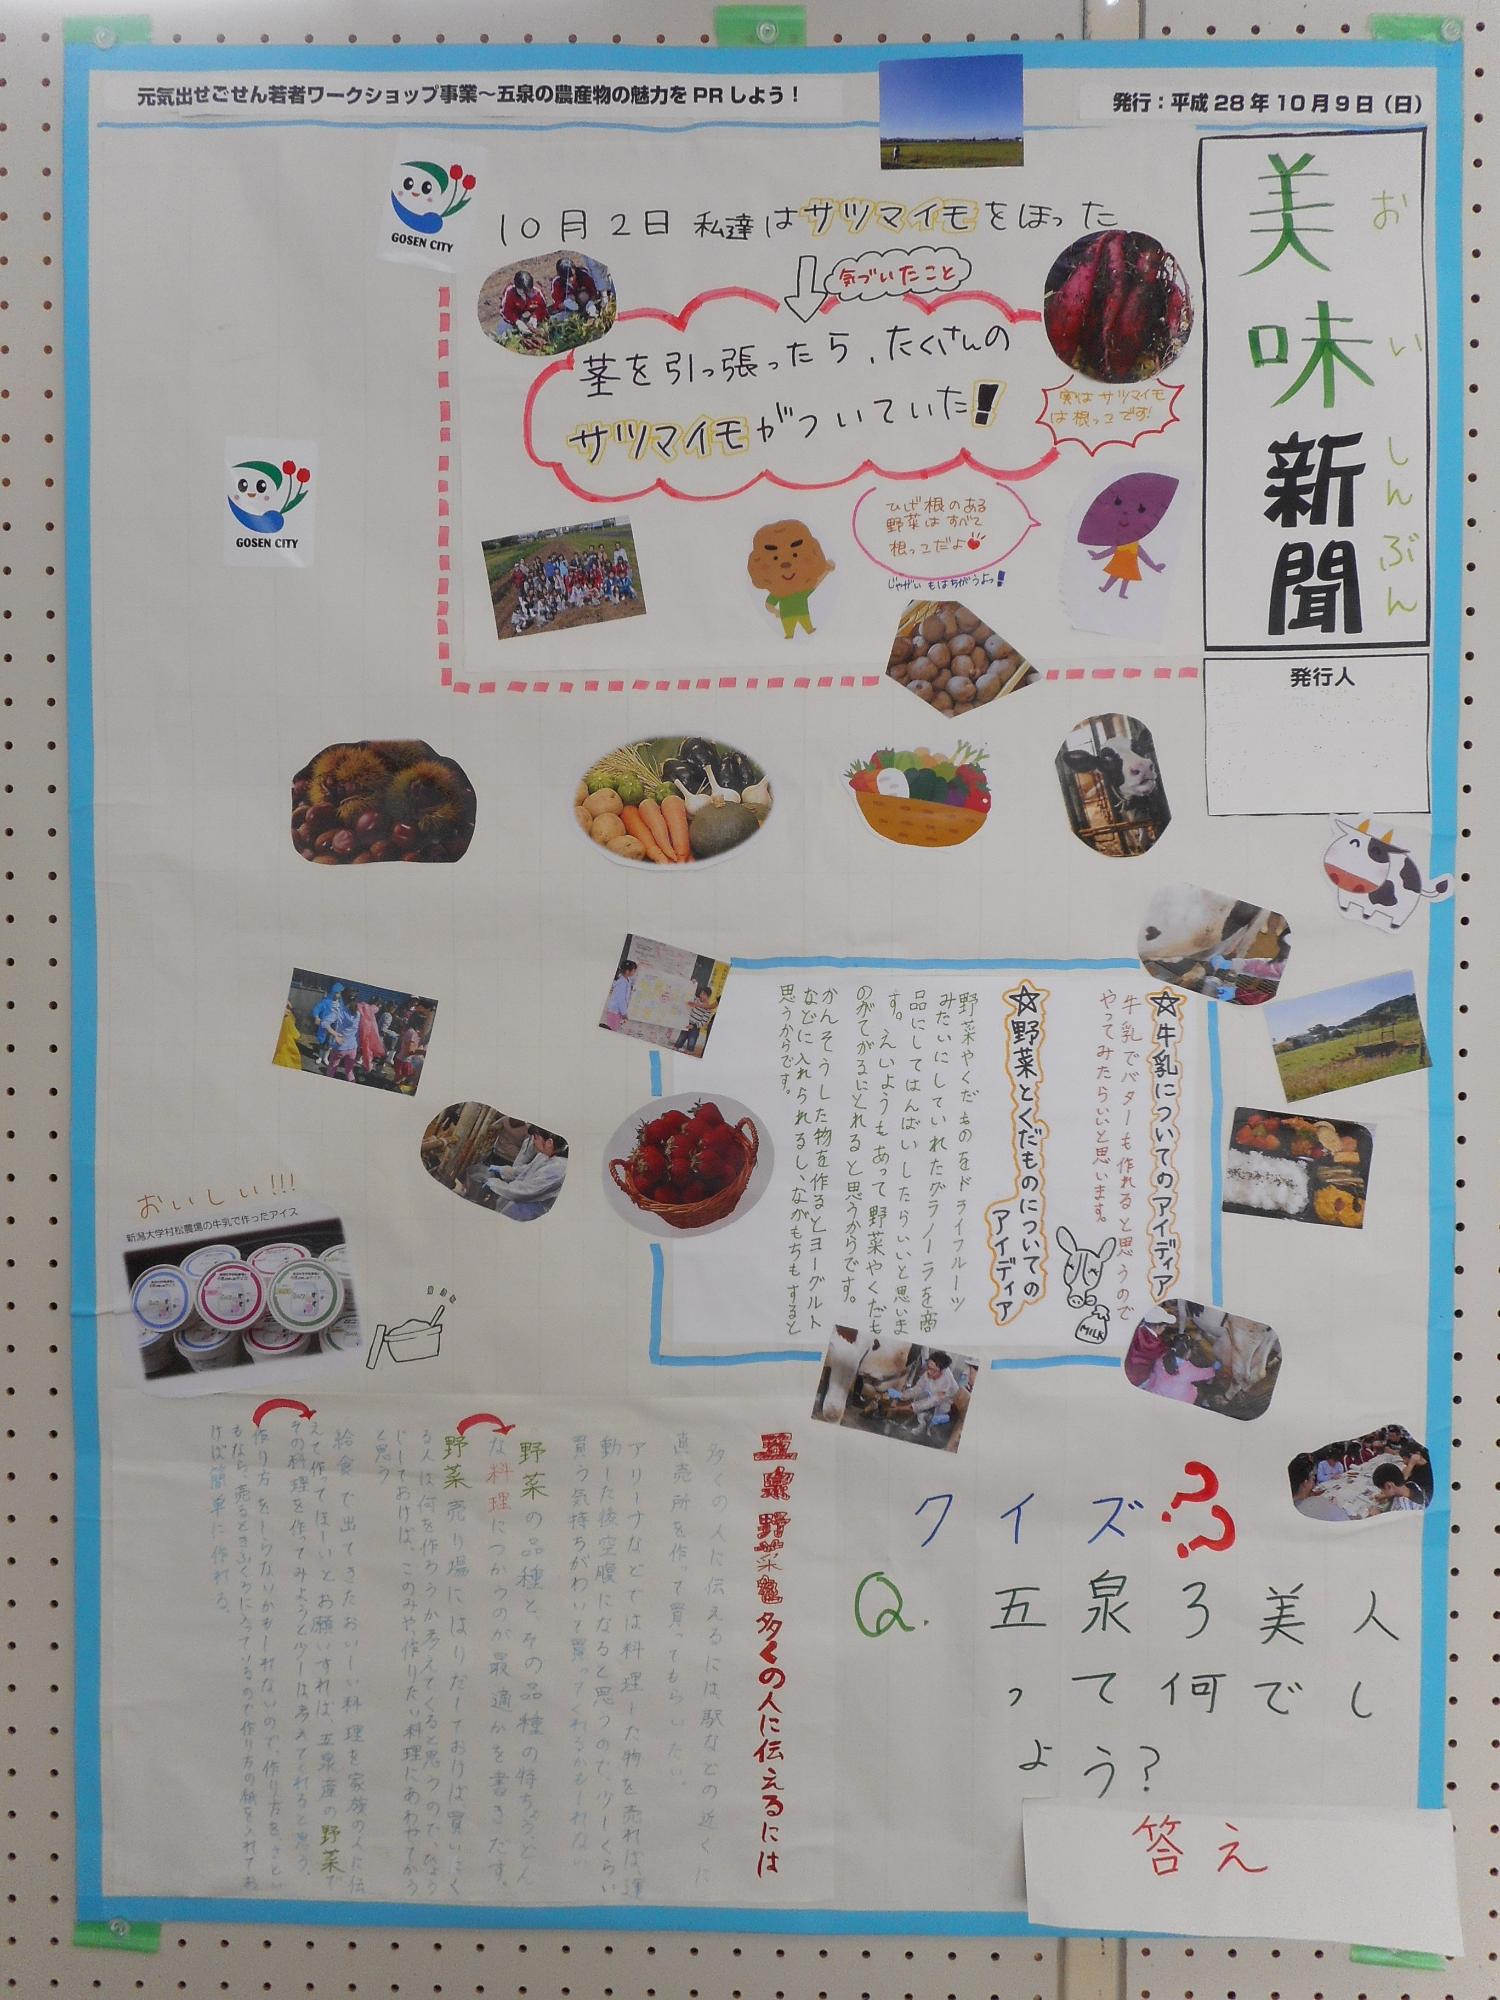 元気出せごせん若者ワークショップ事業～五泉の農産物の魅力をPRしよう！
発行：平成28年10月9日（日）
美味新聞
おいしんぶん
発行人
GOSEN CITY
10月2日 私達はサツマイモをほった
気づいたこと
茎を引っ張ったら、たくさんの
サツマイモがついていた！
実はサツマイモ
は根っこです！
ひげ根のある
野菜はすべて
根っこだよ
じゃがいもはちがうよっ！
GOSEN CITY
☆牛乳についてのアイディア
牛乳でバターも作れると思うので
やってみたらいいと思います。
MILK
☆野菜とくだものについての
アイディア
野菜やくだものをドライフルーツ
みたいにしていれたグラノーラを商
品にしてはんばいしたらいいと思いま
す。えいようもあって野菜やくだも
のがてがるにとれると思うからです。
かんそうした物を作るとヨーグルト
などに入れられるし、ながもちもすると
思うからです。
おいしい!!!
新潟大学村松農場の牛乳で作ったアイス
五泉野菜を多くの人に伝えるには
多くの人に伝えるには駅などの近くに
直売所を作って買ってもらいたい。
アリーナなどでは料理した物を売れば、運
動した後空腹になると思うので、少しくらい
買う気持ちがわいて買ってくれるかもしれない
野菜の品種とその品種の特ちょう、どん
な料理につかうのが最適かを書きだす。
野菜売り場にはりだしておけば買いにく
る人は何を作ろうか考えてくると思うので、ひょう
じしておけば、このみや、作りたい料理にあわせてかう
と思う
給食で出てきたおいしい料理を家族の人に伝
えて作ってほしいとお願いすれば、五泉産の野菜で
その料理を作ってみようと少しは考えてくれると思う。
作り方をしらないかもしれないので、作り方を、さとい
もなら、売るときふくろに入っているので作り方の紙を入れてお
けば簡単に作れる。
クイズ??
Q.五泉ろ美人
って何でし
ょう？
答え